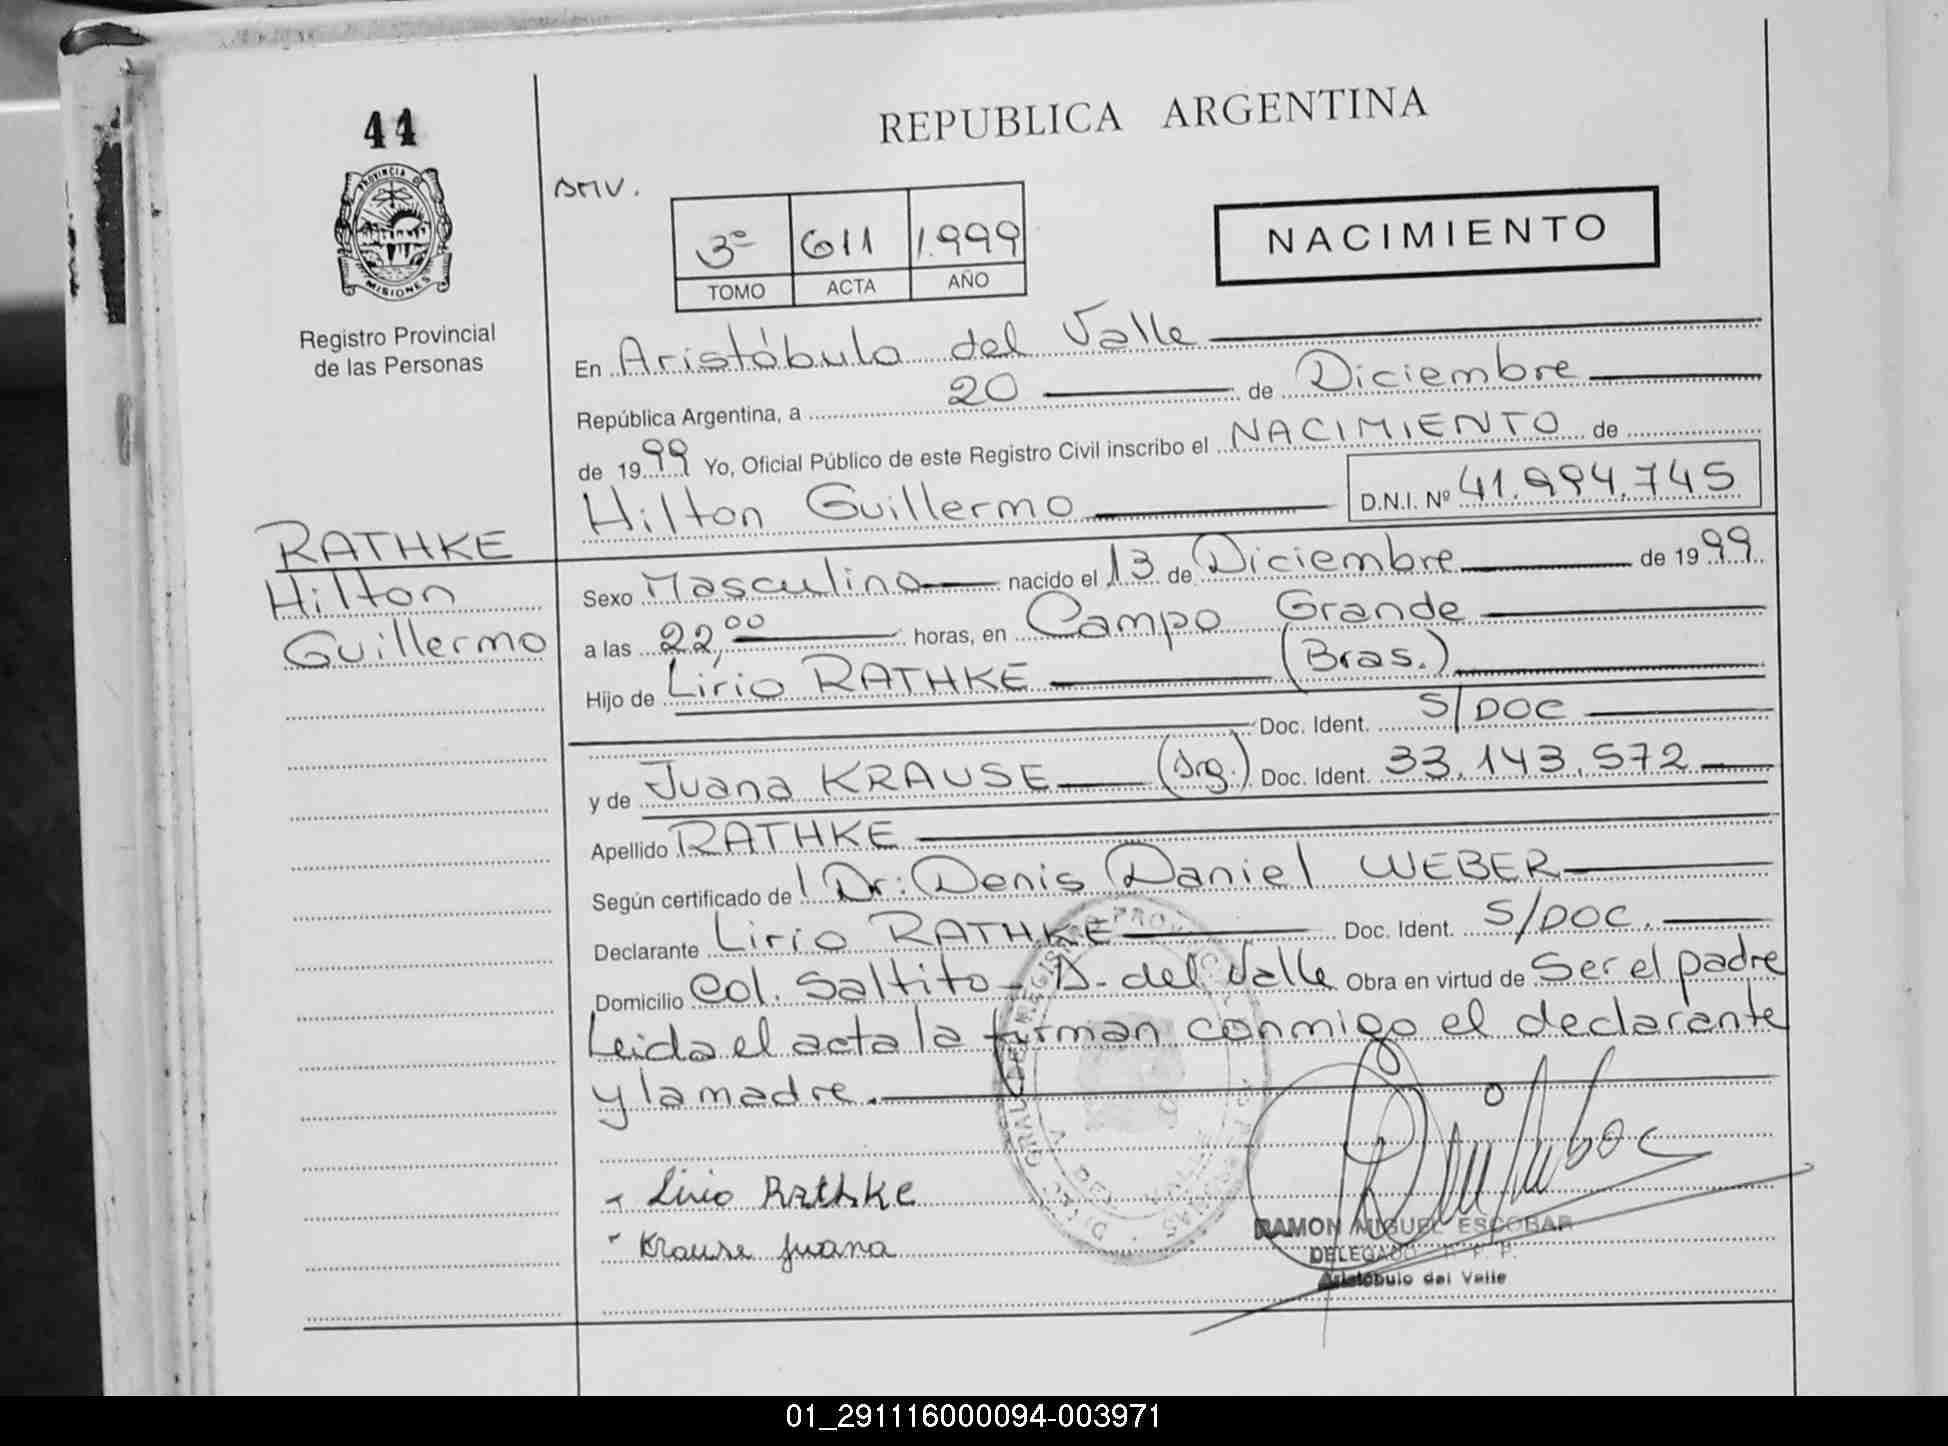 44
REPUBLICA ARGENTINA
PROVINCIA D
MISIONES
Registro Provincial
de las Personas
3º 611 1.999
TOMO ACTA AÑO
NACIMIENTO
En Aristóbulo del Valle
República Argentina, a 20 de Diciembre
de 1999 Yo, Oficial Público de este Registro Civil inscribo el NACIMIENTO de
Hilton Guillermo D.N.I. Nº 41.994.745
RATHKE
Hilton
Guillermo
Sexo Masculino nacido el 13 de Diciembre de 1999
a las 22,00 horas, en Campo Grande
Hijo de Lirio RATHKE (Bras.)
Doc. Ident. S/DOC
y de Juana KRAUSE (Arg.) Doc. Ident. 33.143.572
Apellido RATHKE
Según certificado de Dr: Denis Daniel WEBER
Declarante Lirio RATHKE Doc. Ident. S/DOC.
Domicilio Col. Saltito - A. del Valle Obra en virtud de Ser el padre
Leida el acta la firman conmigo el declarante
y la madre.
Lirio Rathke
Krause Juana
RAMON MIGUEL ESCOBAR
DELEGADO R. P. P.
Aristóbulo del Valle
01_291116000094-003971